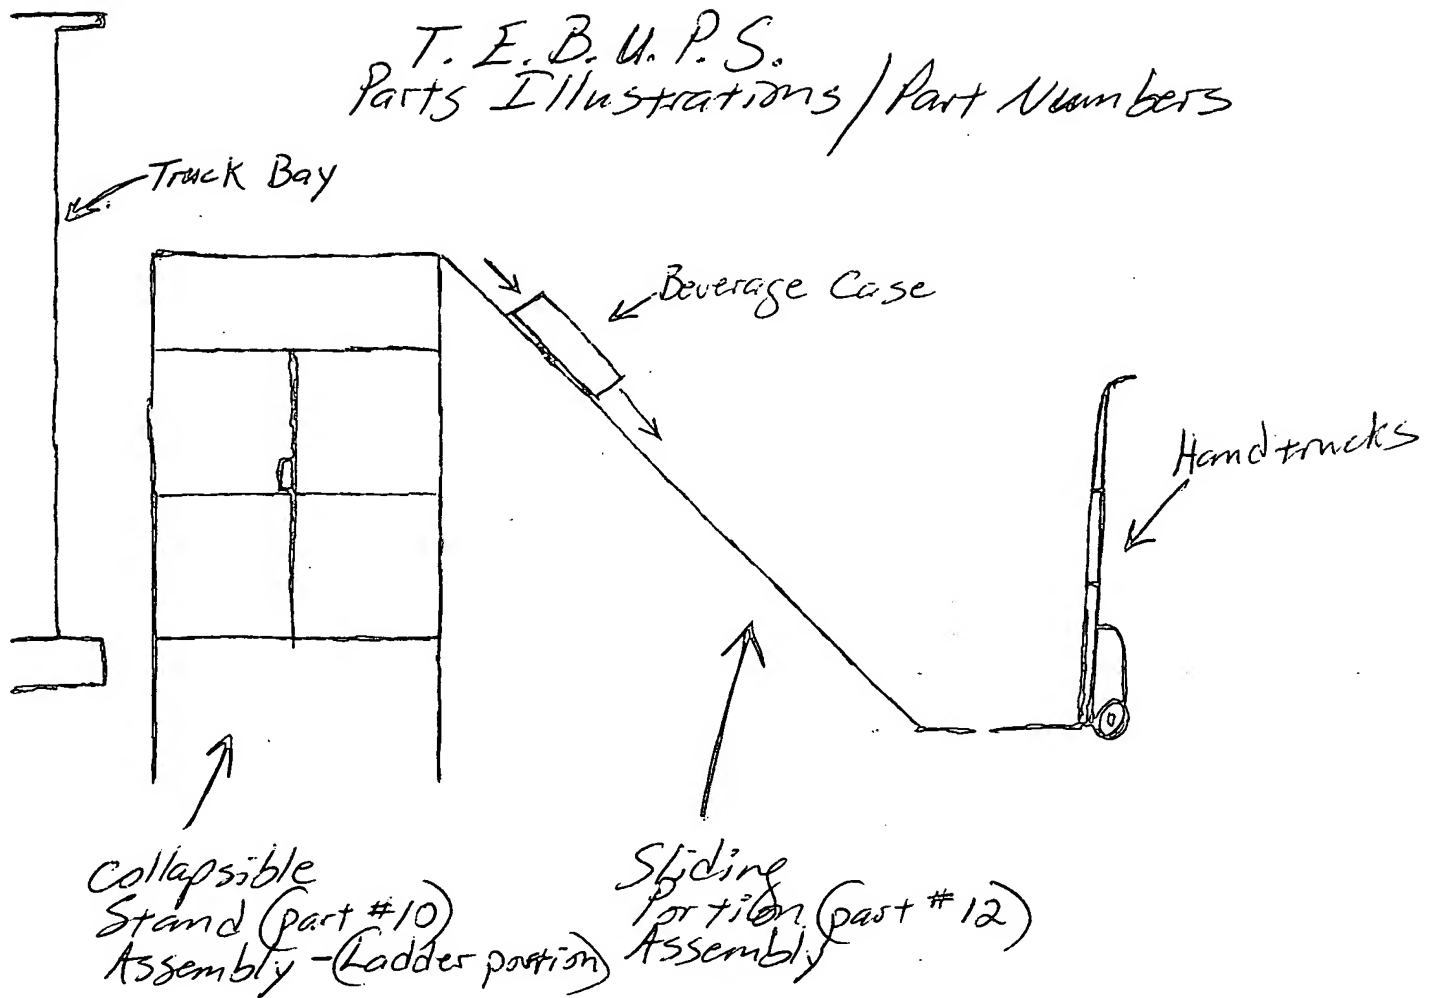 T. E. B. U. P. S.
Parts Illustrations / Part Numbers
Truck Bay
Beverage Case
Handtrucks
Collapsible
Stand (part #10)
Assembly - (Ladder portion)
Sliding
Portion (part #12)
Assembly